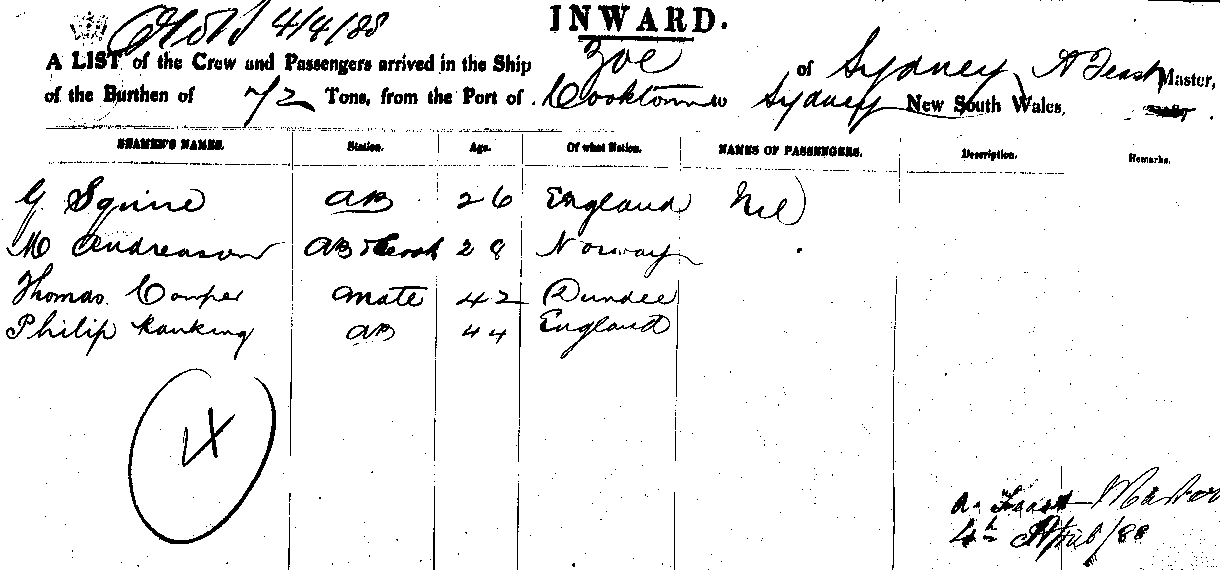 INWARD.
4/4/88
A LIST of the Crew and Passengers arrived in the Ship Zoe of Sydney, A Feast Master,
of the Burthen of 72 Tons, from the Port of Cooktown to Sydney New South Wales,
SEAMEN'S NAMES. Station. Age. Of what Nation. NAMES OF PASSENGERS. Description. Remarks.
G Squire AB 26 England Nil
M Andreason AB & Cook 28 Norway
Thomas Cowper Mate 42 Dundee
Philip Ranking AB 44 England
4
A. Feast Master
4th April/88